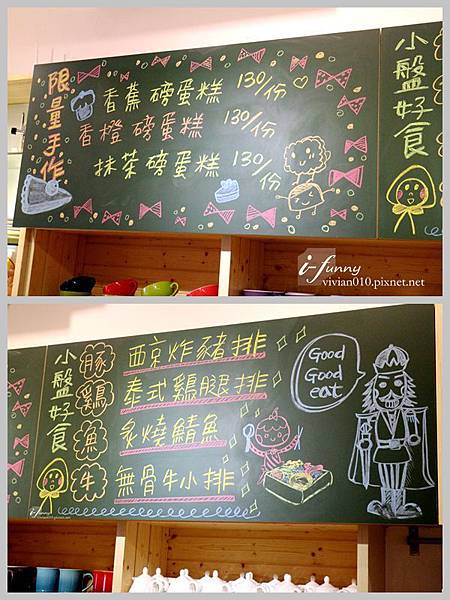 限量手作
香蕉磅蛋糕 130/份
香橙磅蛋糕 130/份
抹茶磅蛋糕 130/份
小盤好食
i-funny
vivian010.pixnet.net
小盤好食
豚 西京炸豬排
鷄 泰式鷄腿排
魚 炙燒鯖魚
牛 無骨牛小排
Good
Good
eat
i-funny